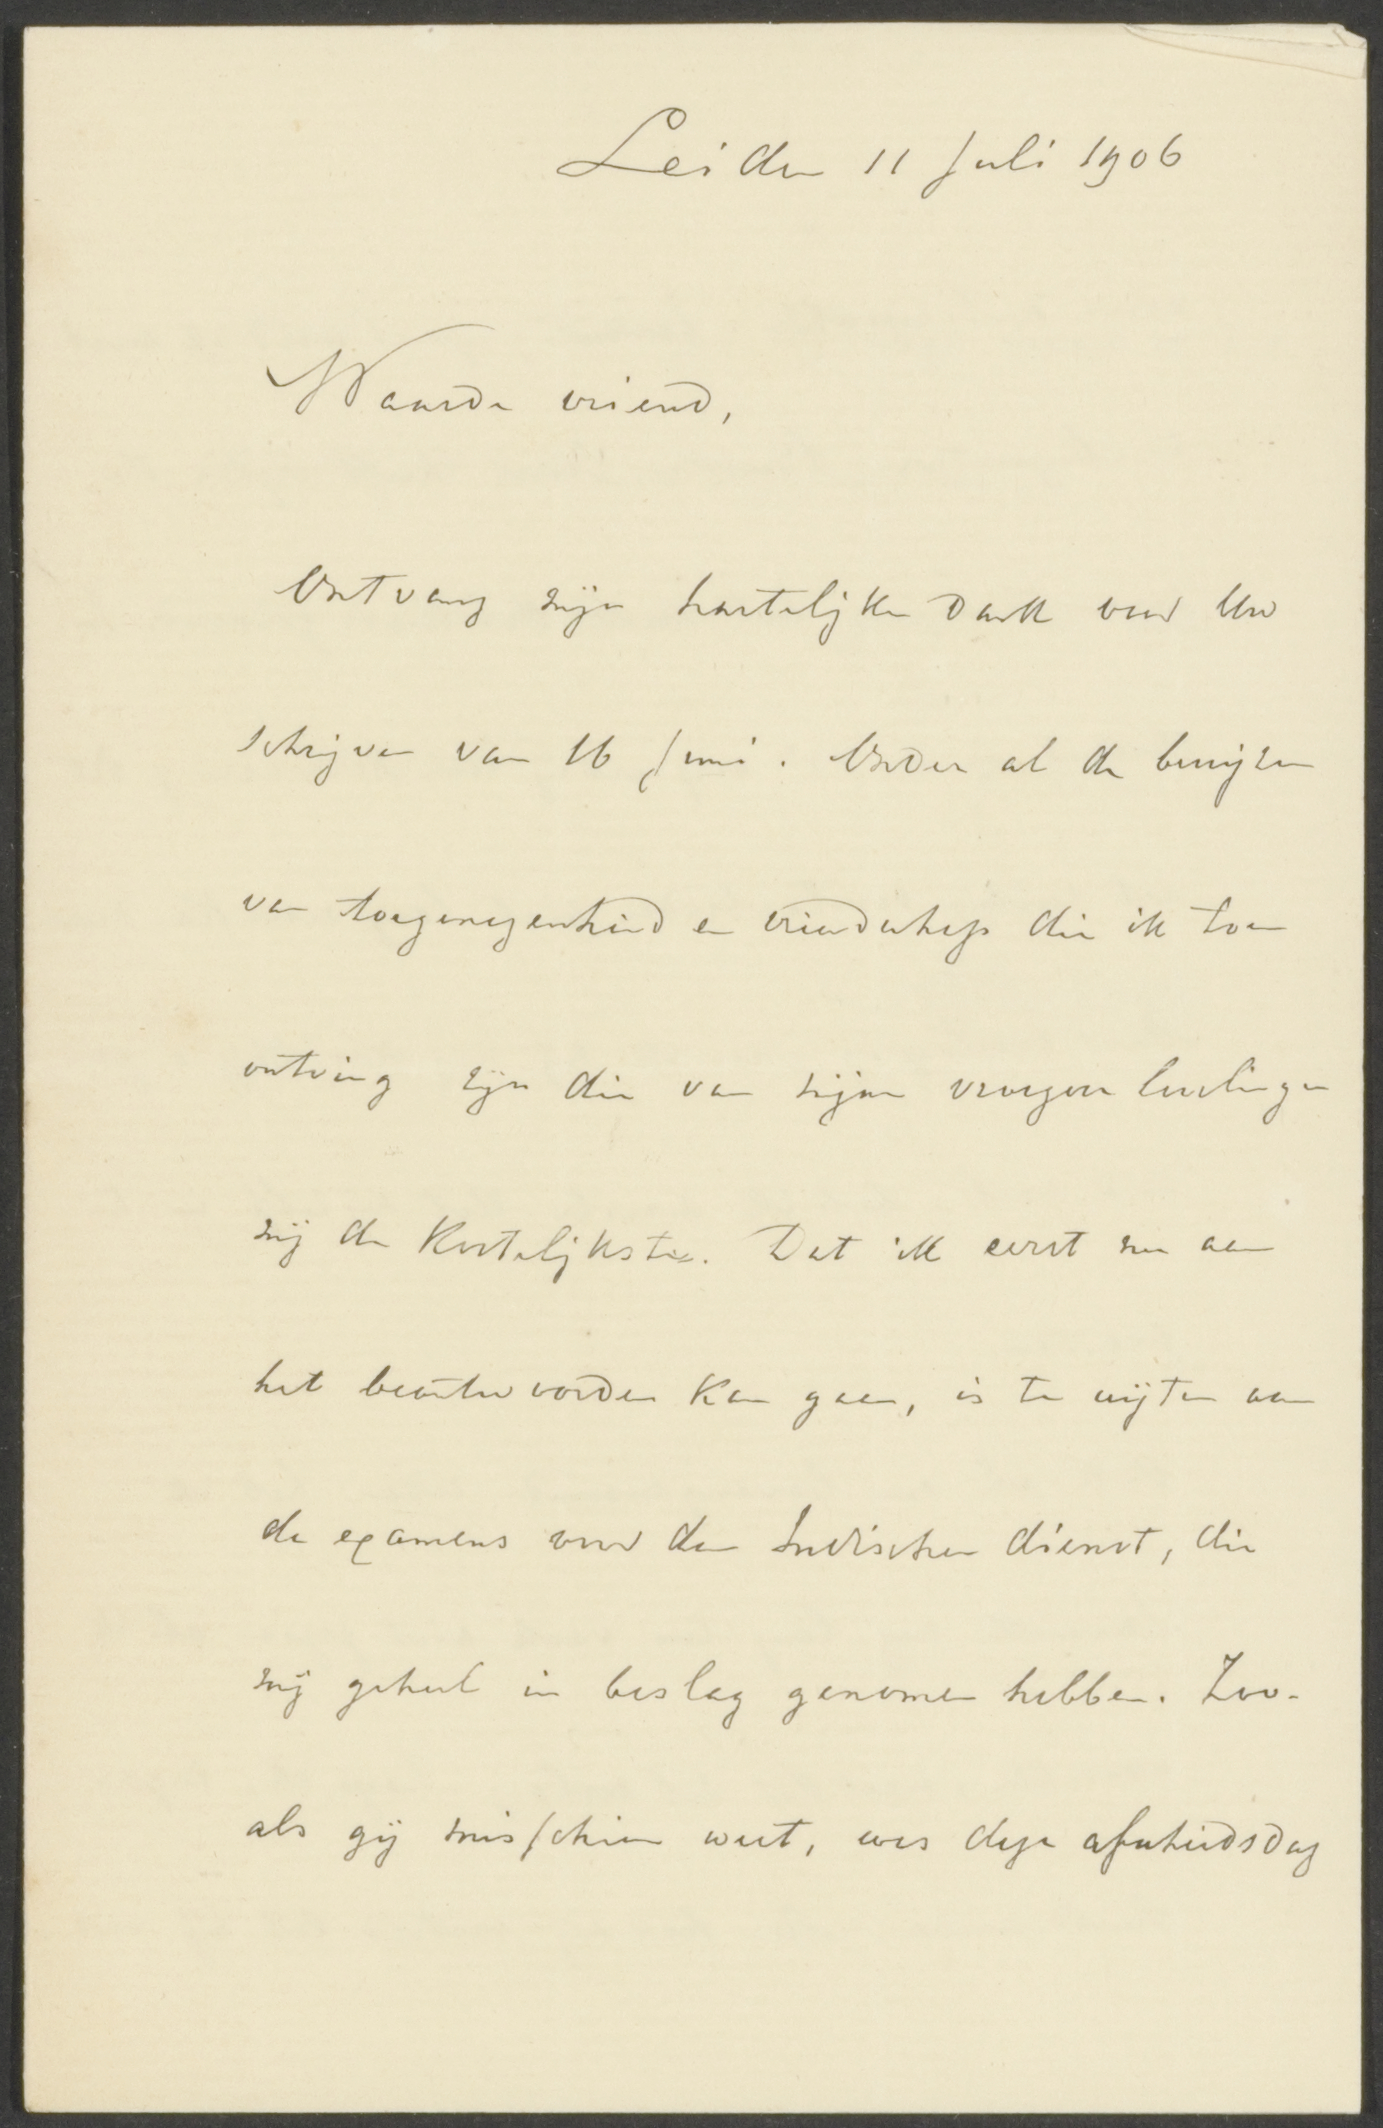 Leiden 11 Juli 1906
Waarde vriend,
Ontvang mijn hartelijken dank voor Uw
schrijven van 16 Juni. Onder al de bewijzen
van toegenegenheid en vriendschap die ik toen
ontving zijn die van mijne vroegere leerlingen
mij de kostelijkste. Dat ik eerst nu aan
het beantwoorden kan gaan, is te wijten aan
de examens voor den Indischen dienst, die
mij geheel in beslag genomen hebben. Zoo-
als gij misschien weet, was deze afscheidsdag